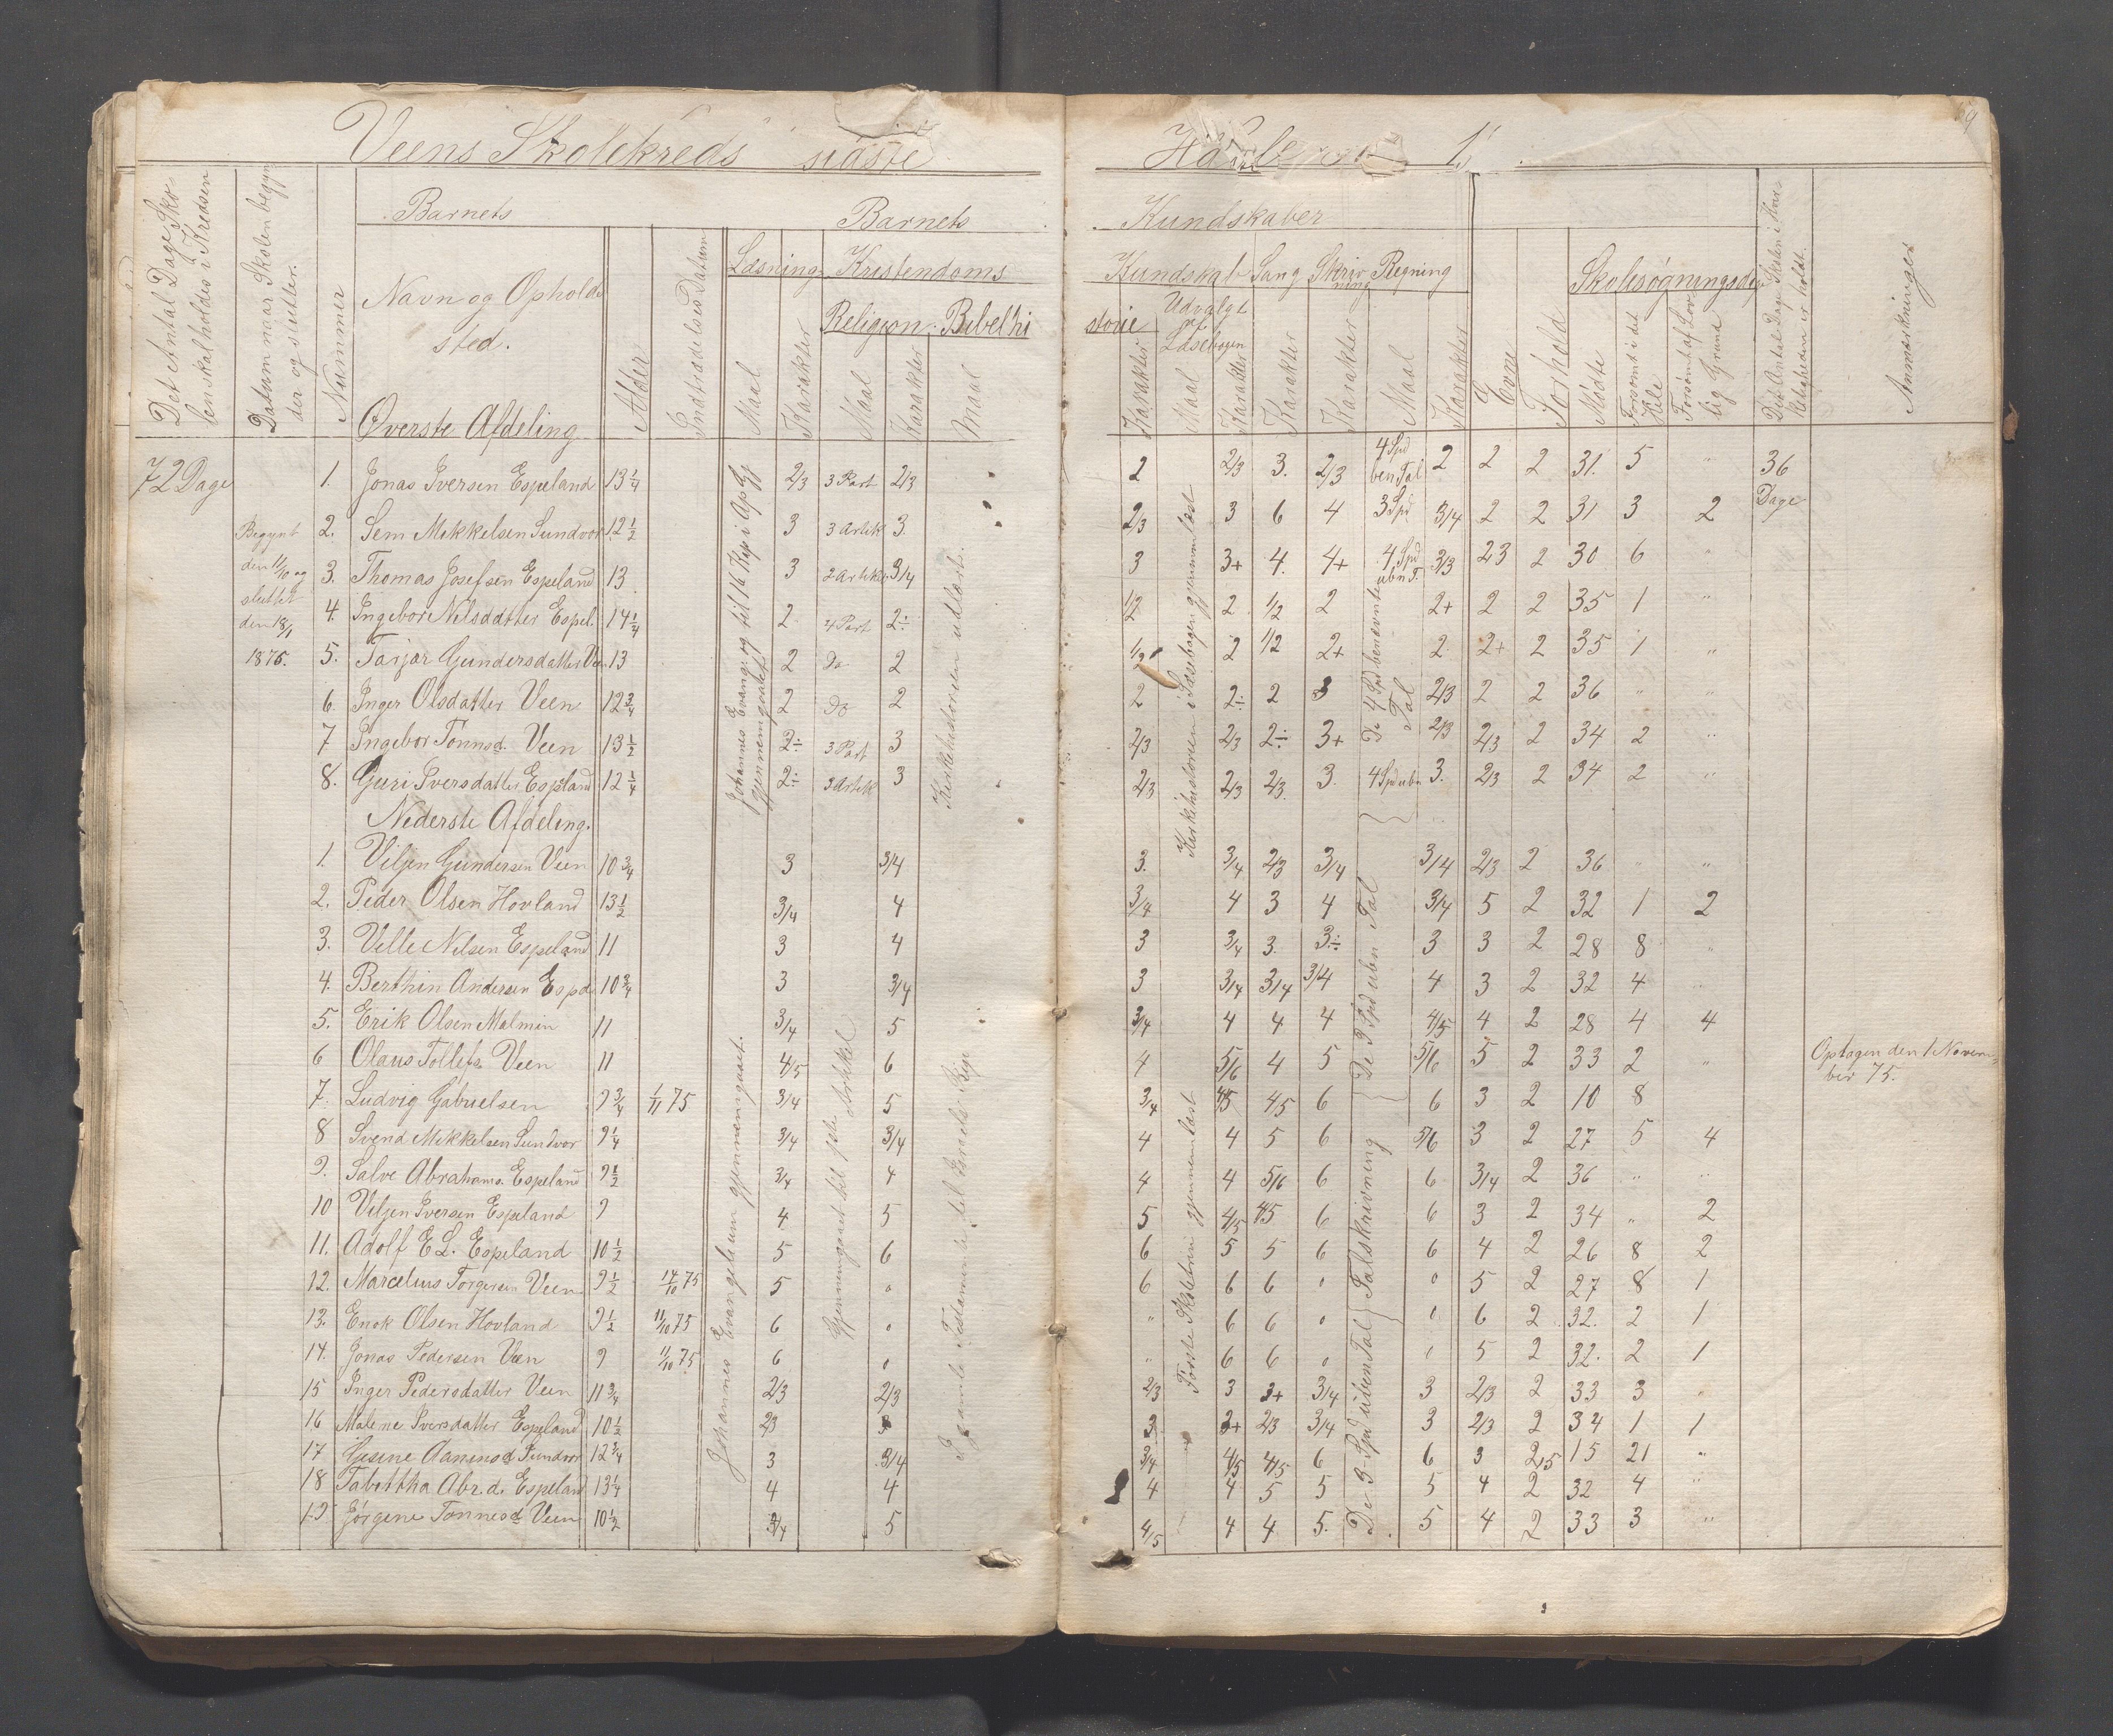 Veens Skolekreds sidste
Det Antal Dage Skolen skal holdes i Kredsen
Datum naar Skolen begynder og slutter.
Nummer
Barnets
Navn og Opholdssted.
Alder
Indtrædelses Datum
Barnets
Læsning
Maal
Karakter
Kristendoms
Religion
Maal
Karakter
Bibelhi
Maal
Øverste Afdeling
72 Dage
Begynt
den 11/10 og
sluttet
den 18/1
1876.
1. Jonas Iversen Espeland 13 1/4 2/3 3 Part 2/3
2. Sem Mikkelsen Sundvor 12 1/2 3 3 Artik 3.
3. Thomas Josefsen Espeland 13 3 2 Artik 3/4
4. Ingebor Nilsdatter Espel. 14 1/4 2 4 Part 2÷
5. Tarjer Gundersdatter Veen 13 2 Do 2
6. Inger Olsdatter Veen 12 3/4 2 Do 2
7 Ingebor Tønnsd. Veen 13 1/2 2÷ 3 Part 3
8. Guri Iversdatter Espeland 12 1/4 2÷ 3 Artik 3
Johannes Evangl. og til 16 Kap i Ap Gj gjennemgaaet
Kirkehistorien udlært.
Nederste Afdeling.
1. Viljen Gundersen Veen 10 3/4 3 3/4
2. Peder Olsen Hovland 13 1/2 3/4 4
3. Velle Nilsen Espeland 11 3 4
4. Berthin Andersen Espd. 10 3/4 3 3/4
5. Erik Olsen Malmin 11 3/4 5
6 Olaus Tollefs. Veen 11 4/5 6
7. Ludvig Gabrielsen 9 3/4 1/11 75 3/4 5
8 Svend Mikkelsen Sundvor 9 1/4 3/4 3/4
9. Salve Abrahams. Espeland 9 1/2 3/4 4
10 Viljen Iversen Espeland 9 4 5
11. Adolf E L. Espeland 10 1/2 5 6
12. Marcelius Torgersen Veen 9 1/2 14/10 75 5 0
13. Enok Olsen Hovland 9 1/2 11/10 75 6 0
14. Jonas Pedersen Veen 9 11/10 75 6 0
15 Inger Pedersdatter Veen 11 3/4 2/3 2/3
16 Malene Iversdatter Espeland 10 1/2 2/3 3
17 Gesine Aanensd Sundvor 12 3/4 3 3/4
18 Tabettha Abr.d. Espeland 13 1/4 4 4
19 Jørgene Tønnesd Veen 10 1/2 3/4 5
Johannes Evangelium gjennemgaaet.
Gjennemgaaet til 1ste Artikkel
Gamle Testamente til Israels Rige
Kundskaber
Kundskab
storie
Karakter
Udvalgt af Læsebogen
Maal
Karakter
Sang
Karakter
Skrivning
Karakter
Regning
Maal
Karakter
Evne
Forhold
Skolesøgningsdage
Mødte
Forsømt i det Hele
Forsømt af lovlig Grund
Det Antal Dage Skolen i Virkeligheden er holdt.
Anmærkninger
2 2/3 3. 2/3 4 Spd ben Tal 2 2 2 31. 5 " 36 Dage
2/3 3 6 4 3 Spd 3/4 2 2 31 3 2
3 3+ 4. 4+ 4 Spd ubn T. 3/3 23 2 30 6 "
1/2 2 1/2 2 2+ 2 2 35 1 "
1/2 2 1/2 2+ 2 2+ 2 35 1 "
2 2÷ 2 3 2/3 2 2 36 " "
2/3 2/3 2÷ 3+ 2/3 2/3 2 34 2 "
2/3 2/3 2/3 3. 4 Spd ubn 3. 2/3 2 34 2 "
Kirkehistorien i Læsebogen gjennemlæst
De 4 Spd benævnte Tal
3. 3/4 2/3 3/4 3/4 2/3 2 36 " "
3/4 4 3 4 3/4 5 2 32 1 2
3 3/4 3. 3÷ 3 3 2 28 8 "
3 3/4 3/4 3/4 4 3 2 32 4 "
3/4 4 4 4 4/5 4 2 28 4 4
4 5/6 4 5 5/6 5 2 33 2 "
3/4 4/5 4/5 6 6 3 2 10 8 Optagen den 1 November 75.
4 4 5 6 5/6 3 2 27 5 4
4 4 5/6 6 6 3/4 2 36 " "
5 4/5 4/5 6 6 3 2 34 " 2
6 5 5 6 6 4 2 26 8 2
6 6 6 0 0 5 2 27 8 1
" 6 6 0 0 6 2 32. 2 1
" 6 6 0 0 5 2 32. 2 1
2/3 3 3+ 3/4 3 2/3 2 33 3 "
3 3+ 2/3 3/4 3 2/3 2 34 1 1
3/4 4/5 4/5 6 6 3 2,5 15 21 "
4 4 5 5 5 4 2 32 4 "
4/5 4 4 5. 5 4 2 33 3 "
Første Skoletrin gjennemlæst
De 3 Spd ubn Tal
Talskrivning
De 3 Spd uben Tal